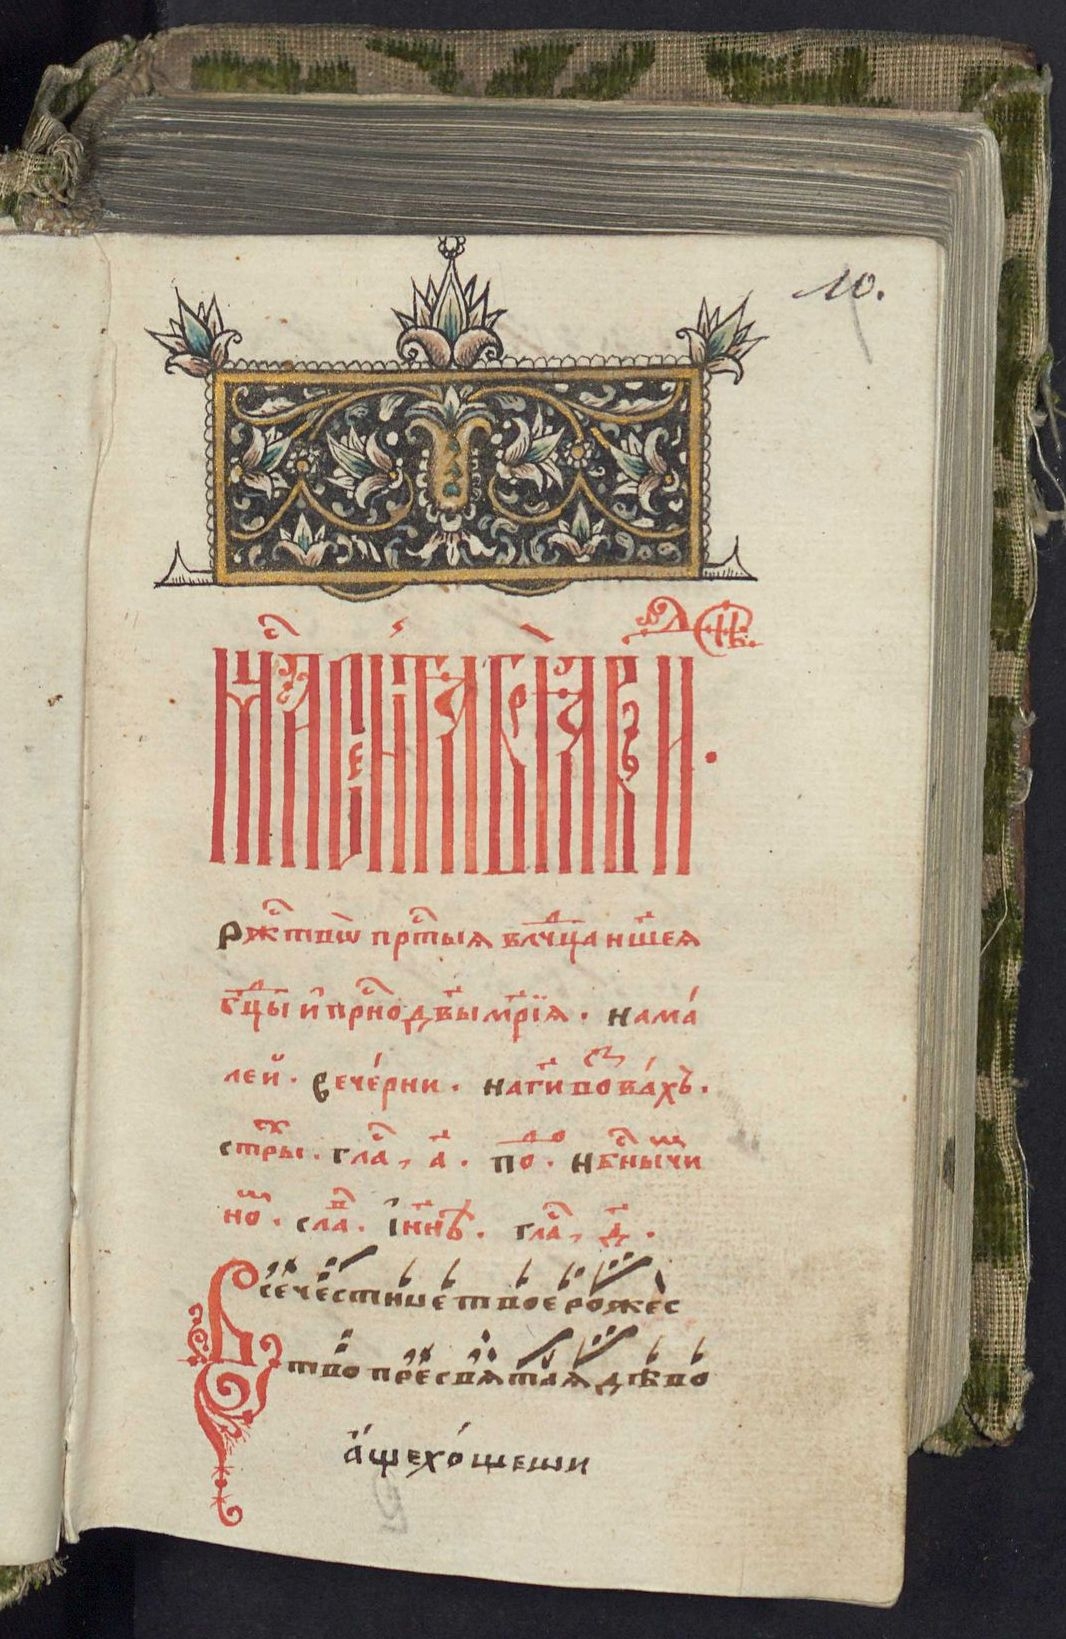 10.
мⷭ҇ца сентѧбрѧ въ и҃ .
Ржⷭ҇тво̀ прⷭ҇тыѧ влⷣчца ншеѧ
бцⷣы и҆ прⷭ҇нодв҃ы мр҃їѧ . нама́
лей . вече́рни . нагⷭ҇и возва́хъ .
стⷯры . глаⷭ҇, а҃ . поⷣ . нбⷭ҇ныⷯ чи
ноⷡ . слаⷡ . і҆нн҃ѣ . глаⷭ҇, д҃ .
Всечестное твое рожес
тво пресвѧтаѧ дѣво
а҆ще хо́щеши